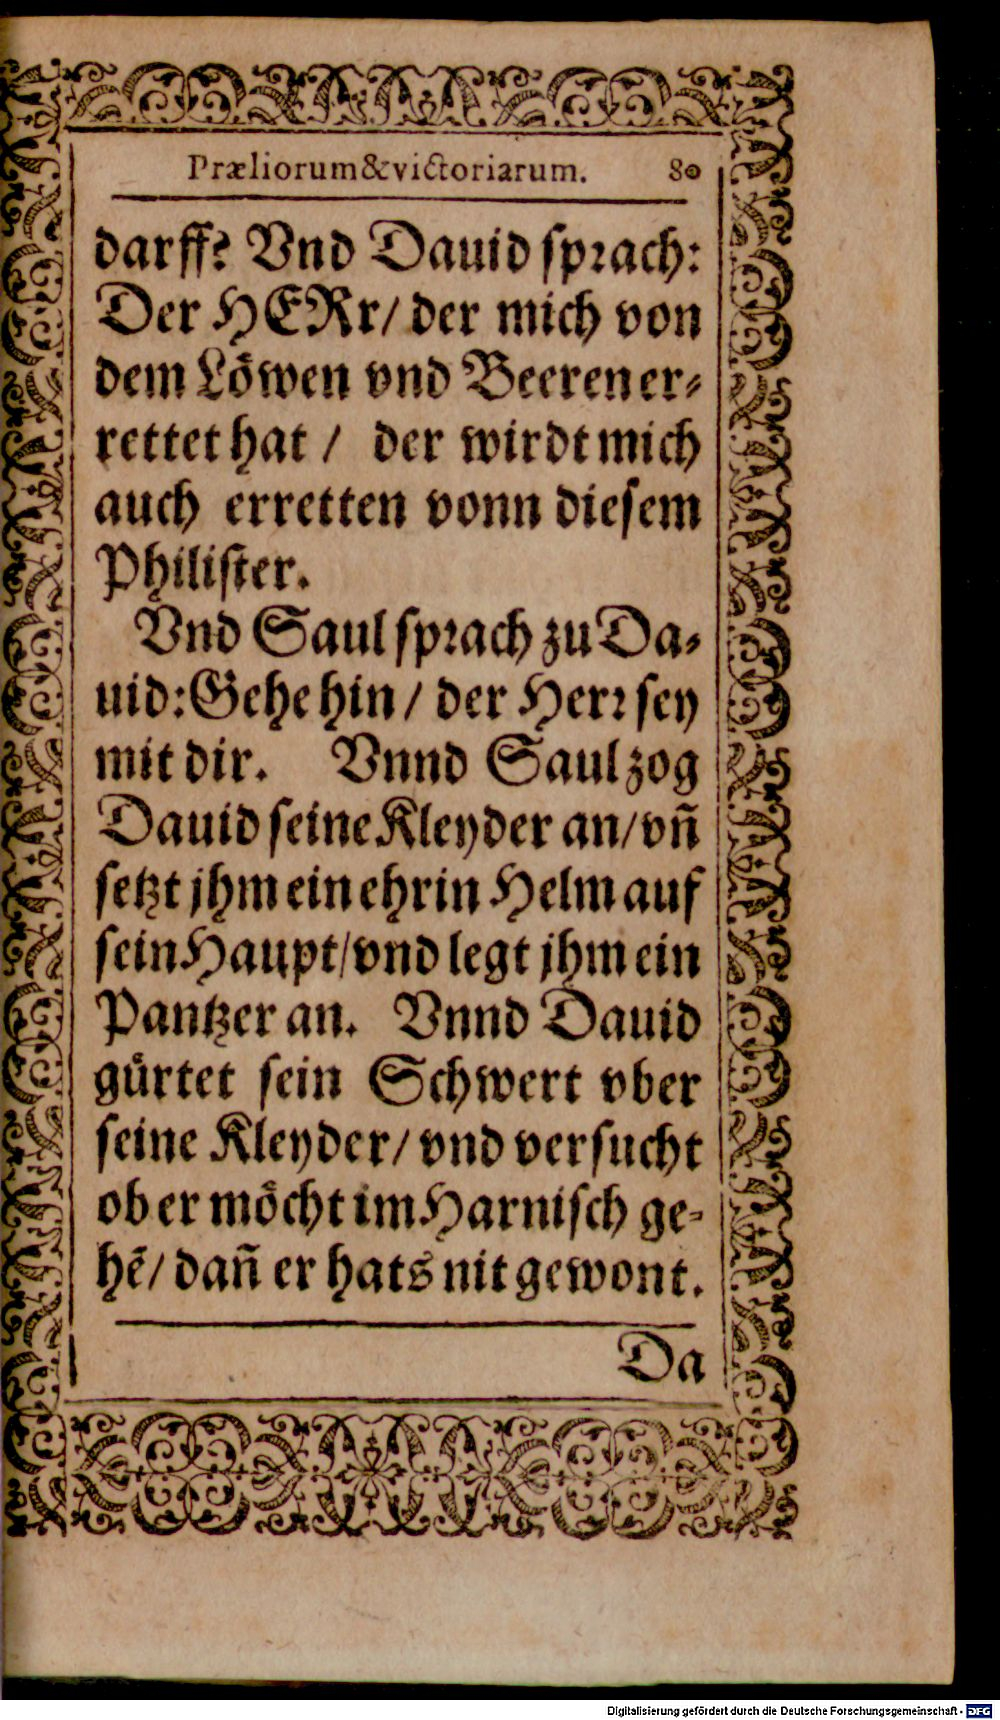 Præliorum&victoriarum. 80
darff? Vnd Dauid sprach:
Der HERr/ der mich von
dem Löwen vnd Beeren er⸗
rettet hat / der wirdt mich
auch erretten vonn diesem
Philister.
Vnd Saul sprach zu Da⸗
uid: Gehe hin / der Herr sey
mit dir. Vnnd Saul zog
Dauid seine Kleyder an/ vñ
setzt jhm ein ehrin Helm auf
sein Haupt/ vnd legt jhm ein
Pantzer an. Vnnd Dauid
gürtet sein Schwert vber
seine Kleyder/ vnd versucht
ob er möcht im Harnisch ge⸗
hẽ/ dañ er hats nit gewont.
Da
Digitalisierung gefördert durch die Deutsche Forschungsgemeinschaft - DFG